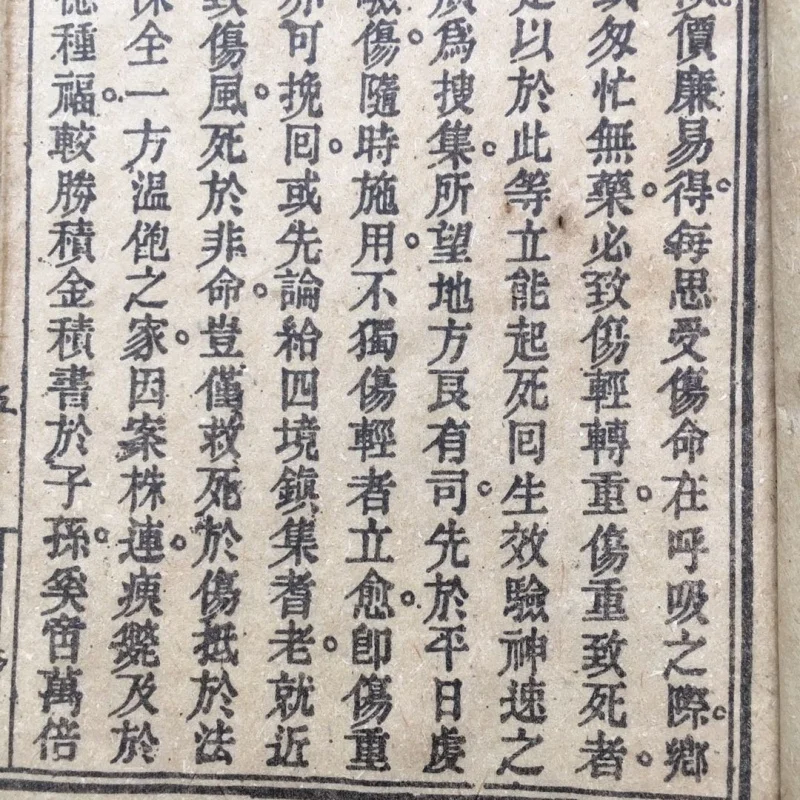 價廉易得。每思受傷命在呼吸之際。鄉
匆忙無藥。必致傷輕轉重。傷重致死者。
以於此等立能起死回生效驗神速之
為搜集。所望地方良有司。先於平日虔
傷。隨時施用。不獨傷輕者立愈。即傷重
亦可挽回。或先論給四境鎮集耆老。就近
致傷風。死於非命。豈僅救死於傷抵於法
保全一方溫飽之家。因案株連。瘐斃及於
種福。較勝積金積書於子孫。奚啻萬倍